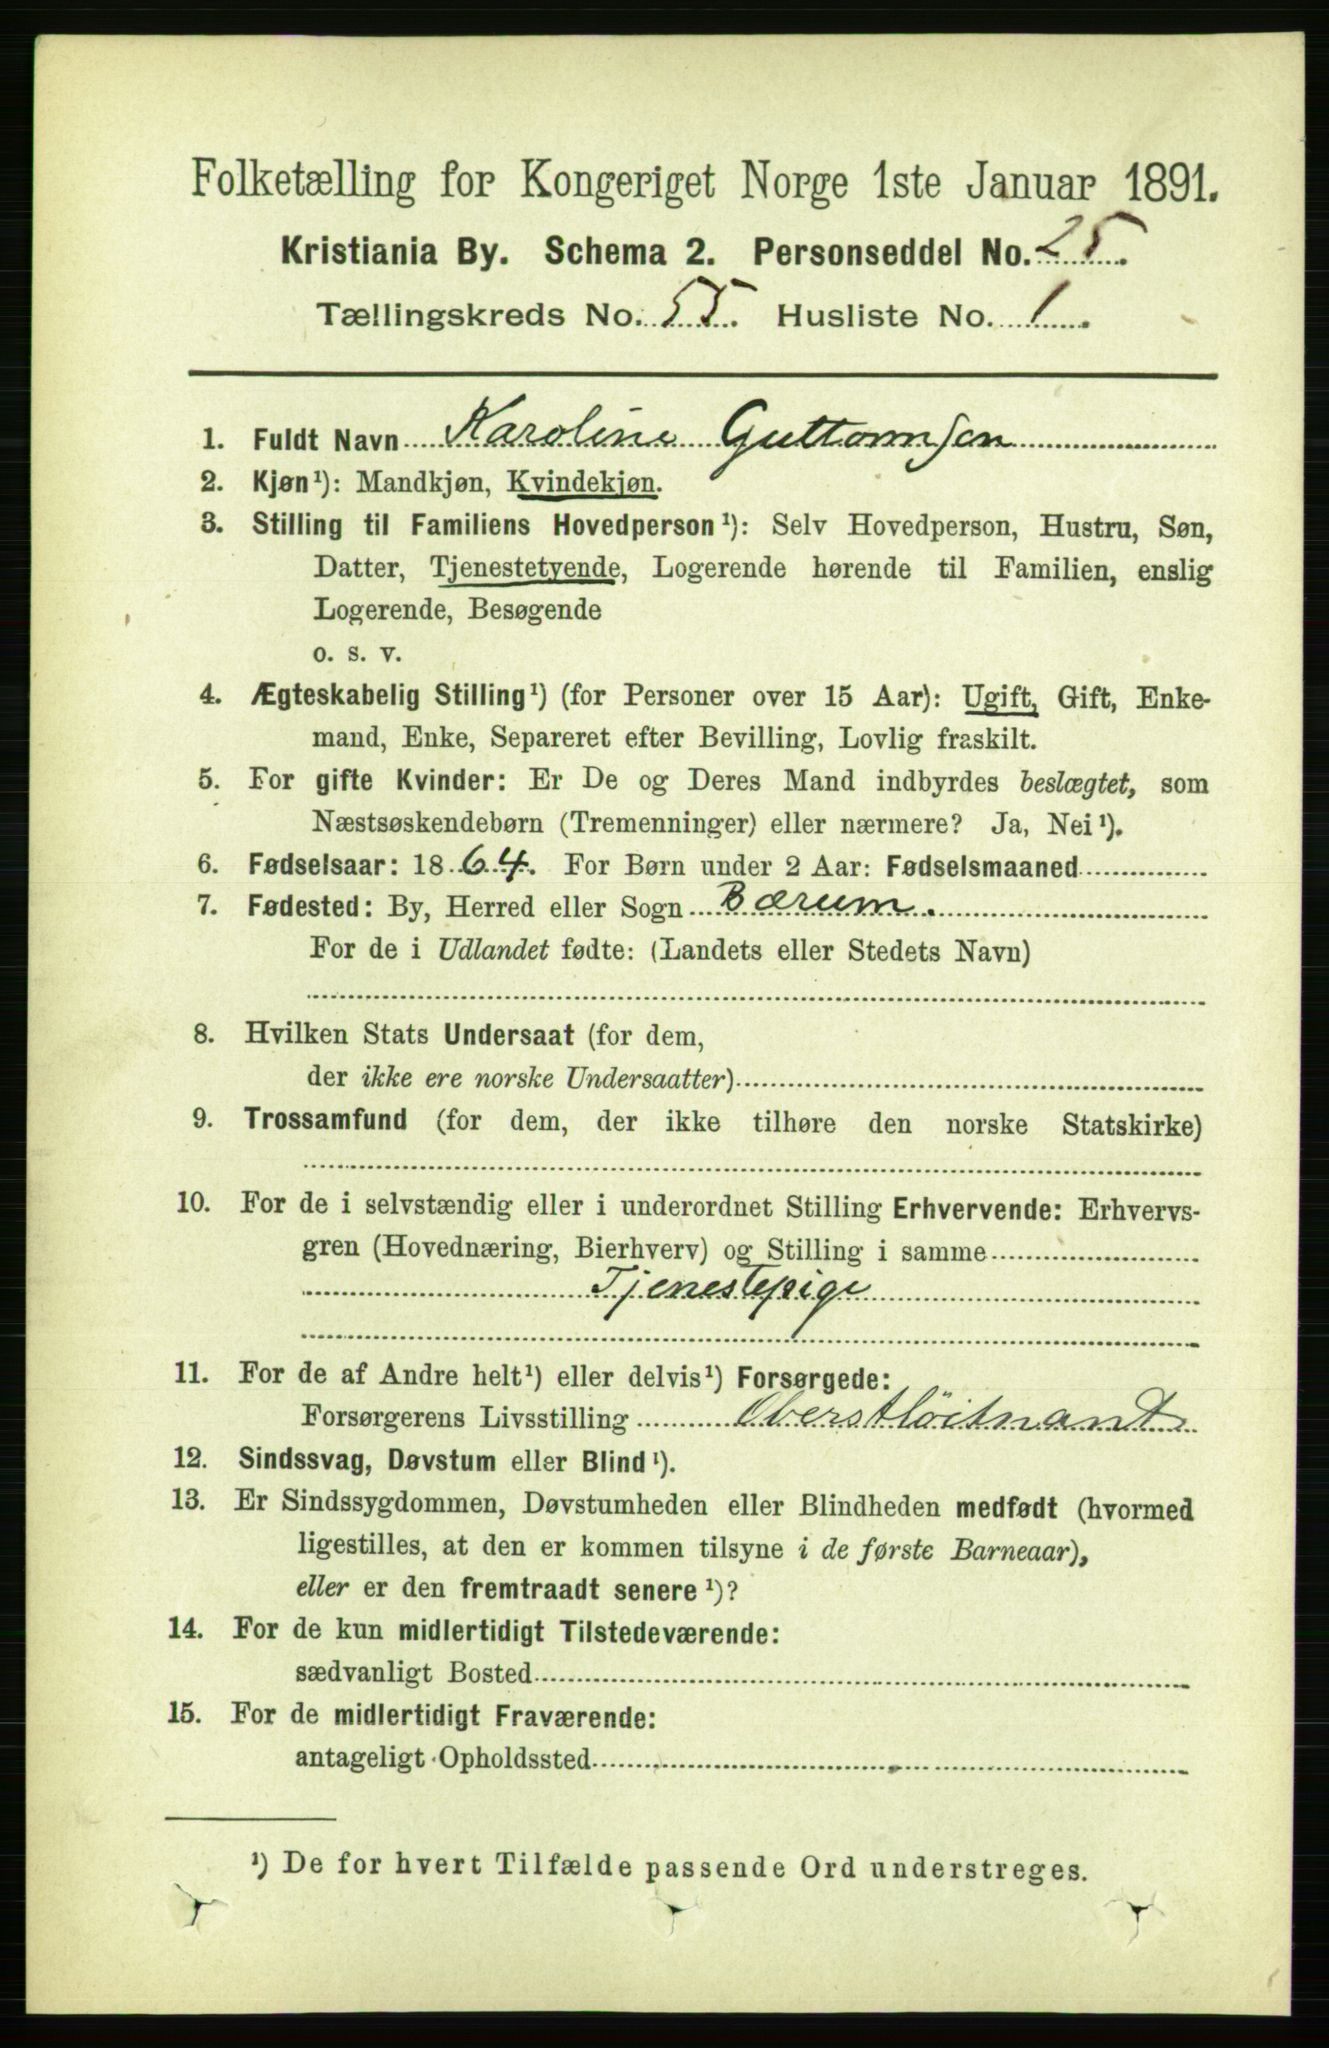 Folketælling for Kongeriget Norge 1ste Januar 1891.
Kristiania By. Schema 2. Personseddel No. 25.
Tællingskreds No. 55. Husliste No. 1.
1. Fuldt Navn Karoline Guttormsen
2. Kjøn¹): Mandkjøn, Kvindekjøn.
3. Stilling til Familiens Hovedperson¹): Selv Hovedperson, Hustru, Søn,
Datter, Tjenestetyende, Logerende hørende til Familien, enslig
Logerende, Besøgende
o. s. v.
4. Ægteskabelig Stilling¹) (for Personer over 15 Aar): Ugift, Gift, Enke-
mand, Enke, Separeret efter Bevilling, Lovlig fraskilt.
5. For gifte Kvinder: Er De og Deres Mand indbyrdes beslægtet, som
Næstsøskendebørn (Tremenninger) eller nærmere? Ja, Nei¹).
6. Fødselsaar: 1864. For Børn under 2 Aar: Fødselsmaaned
7. Fødested: By, Herred eller Sogn Bærum.
For de i Udlandet fødte: (Landets eller Stedets Navn)
8. Hvilken Stats Undersaat (for dem,
der ikke ere norske Undersaatter)
9. Trossamfund (for dem, der ikke tilhøre den norske Statskirke)
10. For de i selvstændig eller i underordnet Stilling Erhvervende: Erhvervs-
gren (Hovednæring, Bierhverv) og Stilling i samme
Tjenestepige
11. For de af Andre helt¹) eller delvis¹) Forsørgede:
Forsørgerens Livsstilling Oberstløitnant
12. Sindssvag, Døvstum eller Blind¹).
13. Er Sindssygdommen, Døvstumheden eller Blindheden medfødt (hvormed
ligestilles, at den er kommen tilsyne i de første Barneaar),
eller er den fremtraadt senere¹)?
14. For de kun midlertidigt Tilstedeværende:
sædvanligt Bosted
15. For de midlertidigt Fraværende:
antageligt Opholdssted
¹) De for hvert Tilfælde passende Ord understreges.